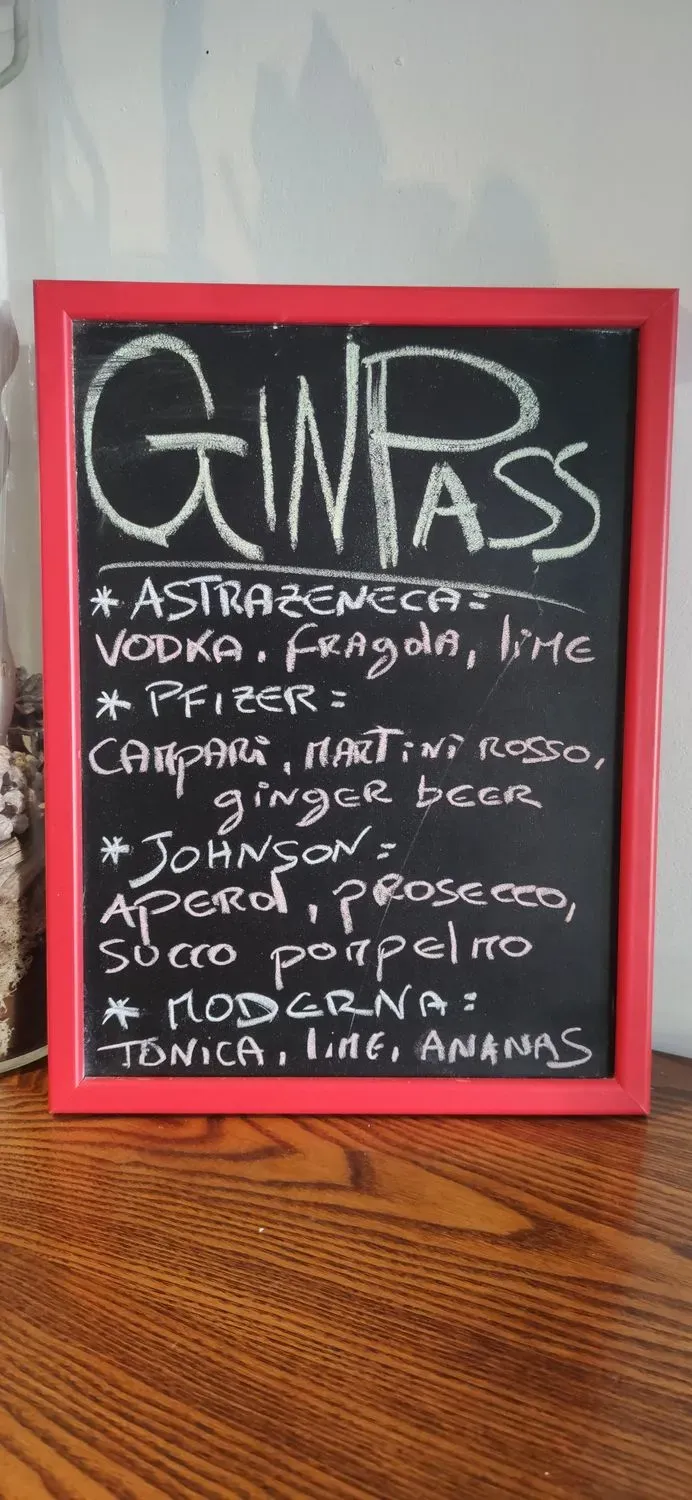 GINPASS
* ASTRAZENECA=
VODKA, fRAgolA, liME
* PFIZER=
CAMPARi, MARTiNi ROSSO,
giNgER bEER
* JOHNSON=
APERol, pROSECCO,
SUCCO poMpElMO
* MODERNA=
TONiCA, liME, ANANAS